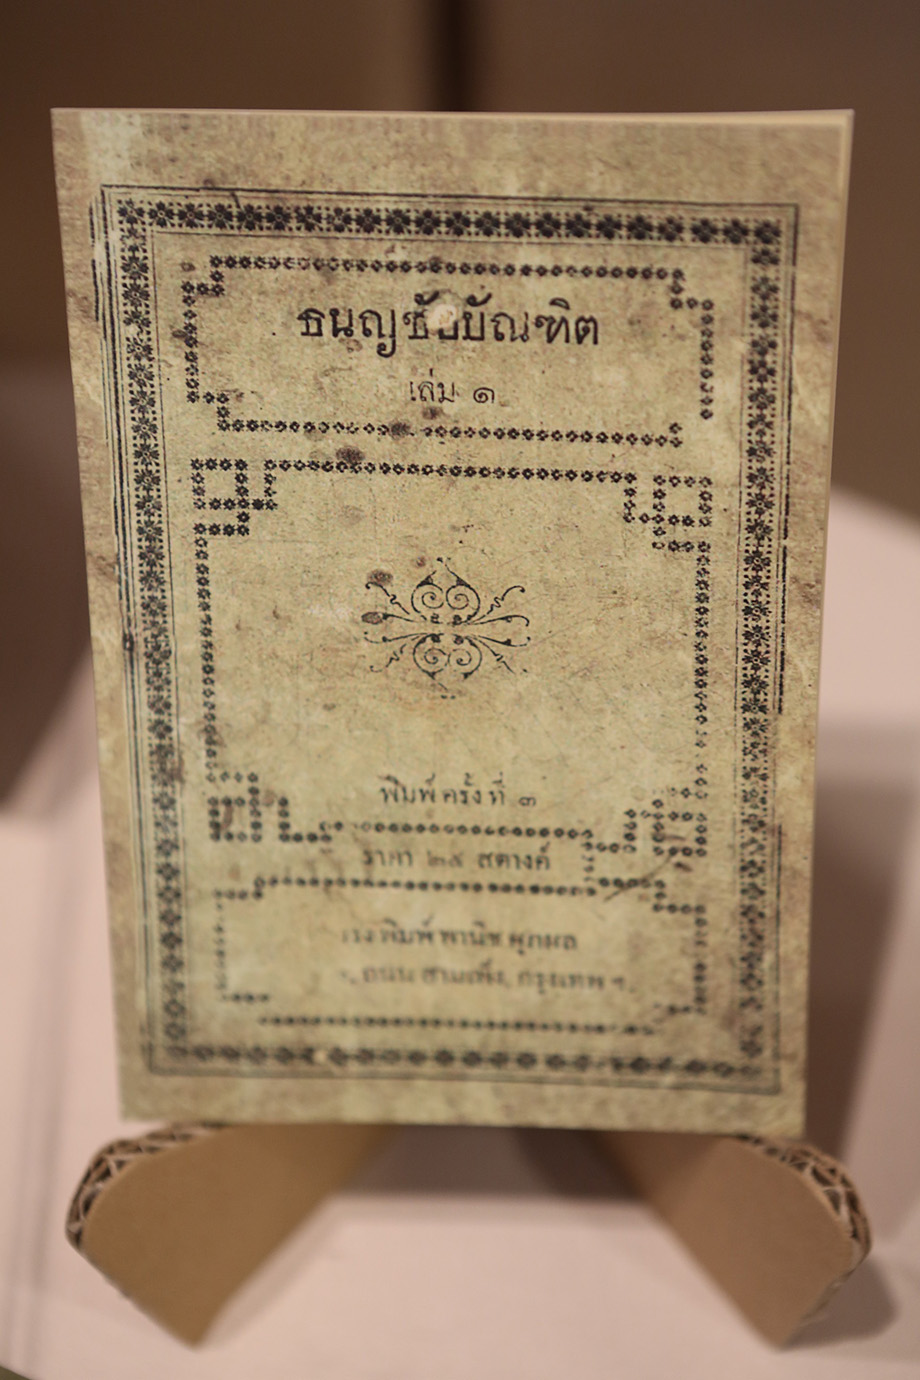 ธนญชัยบัณฑิต
เล่ม ๑
พิมพ์ครั้งที่ ๓
ราคา ๒๕ สตางค์
โรงพิมพ์พานิชศุภผล
ถนน สามเพ็ง, กรุงเทพ ฯ